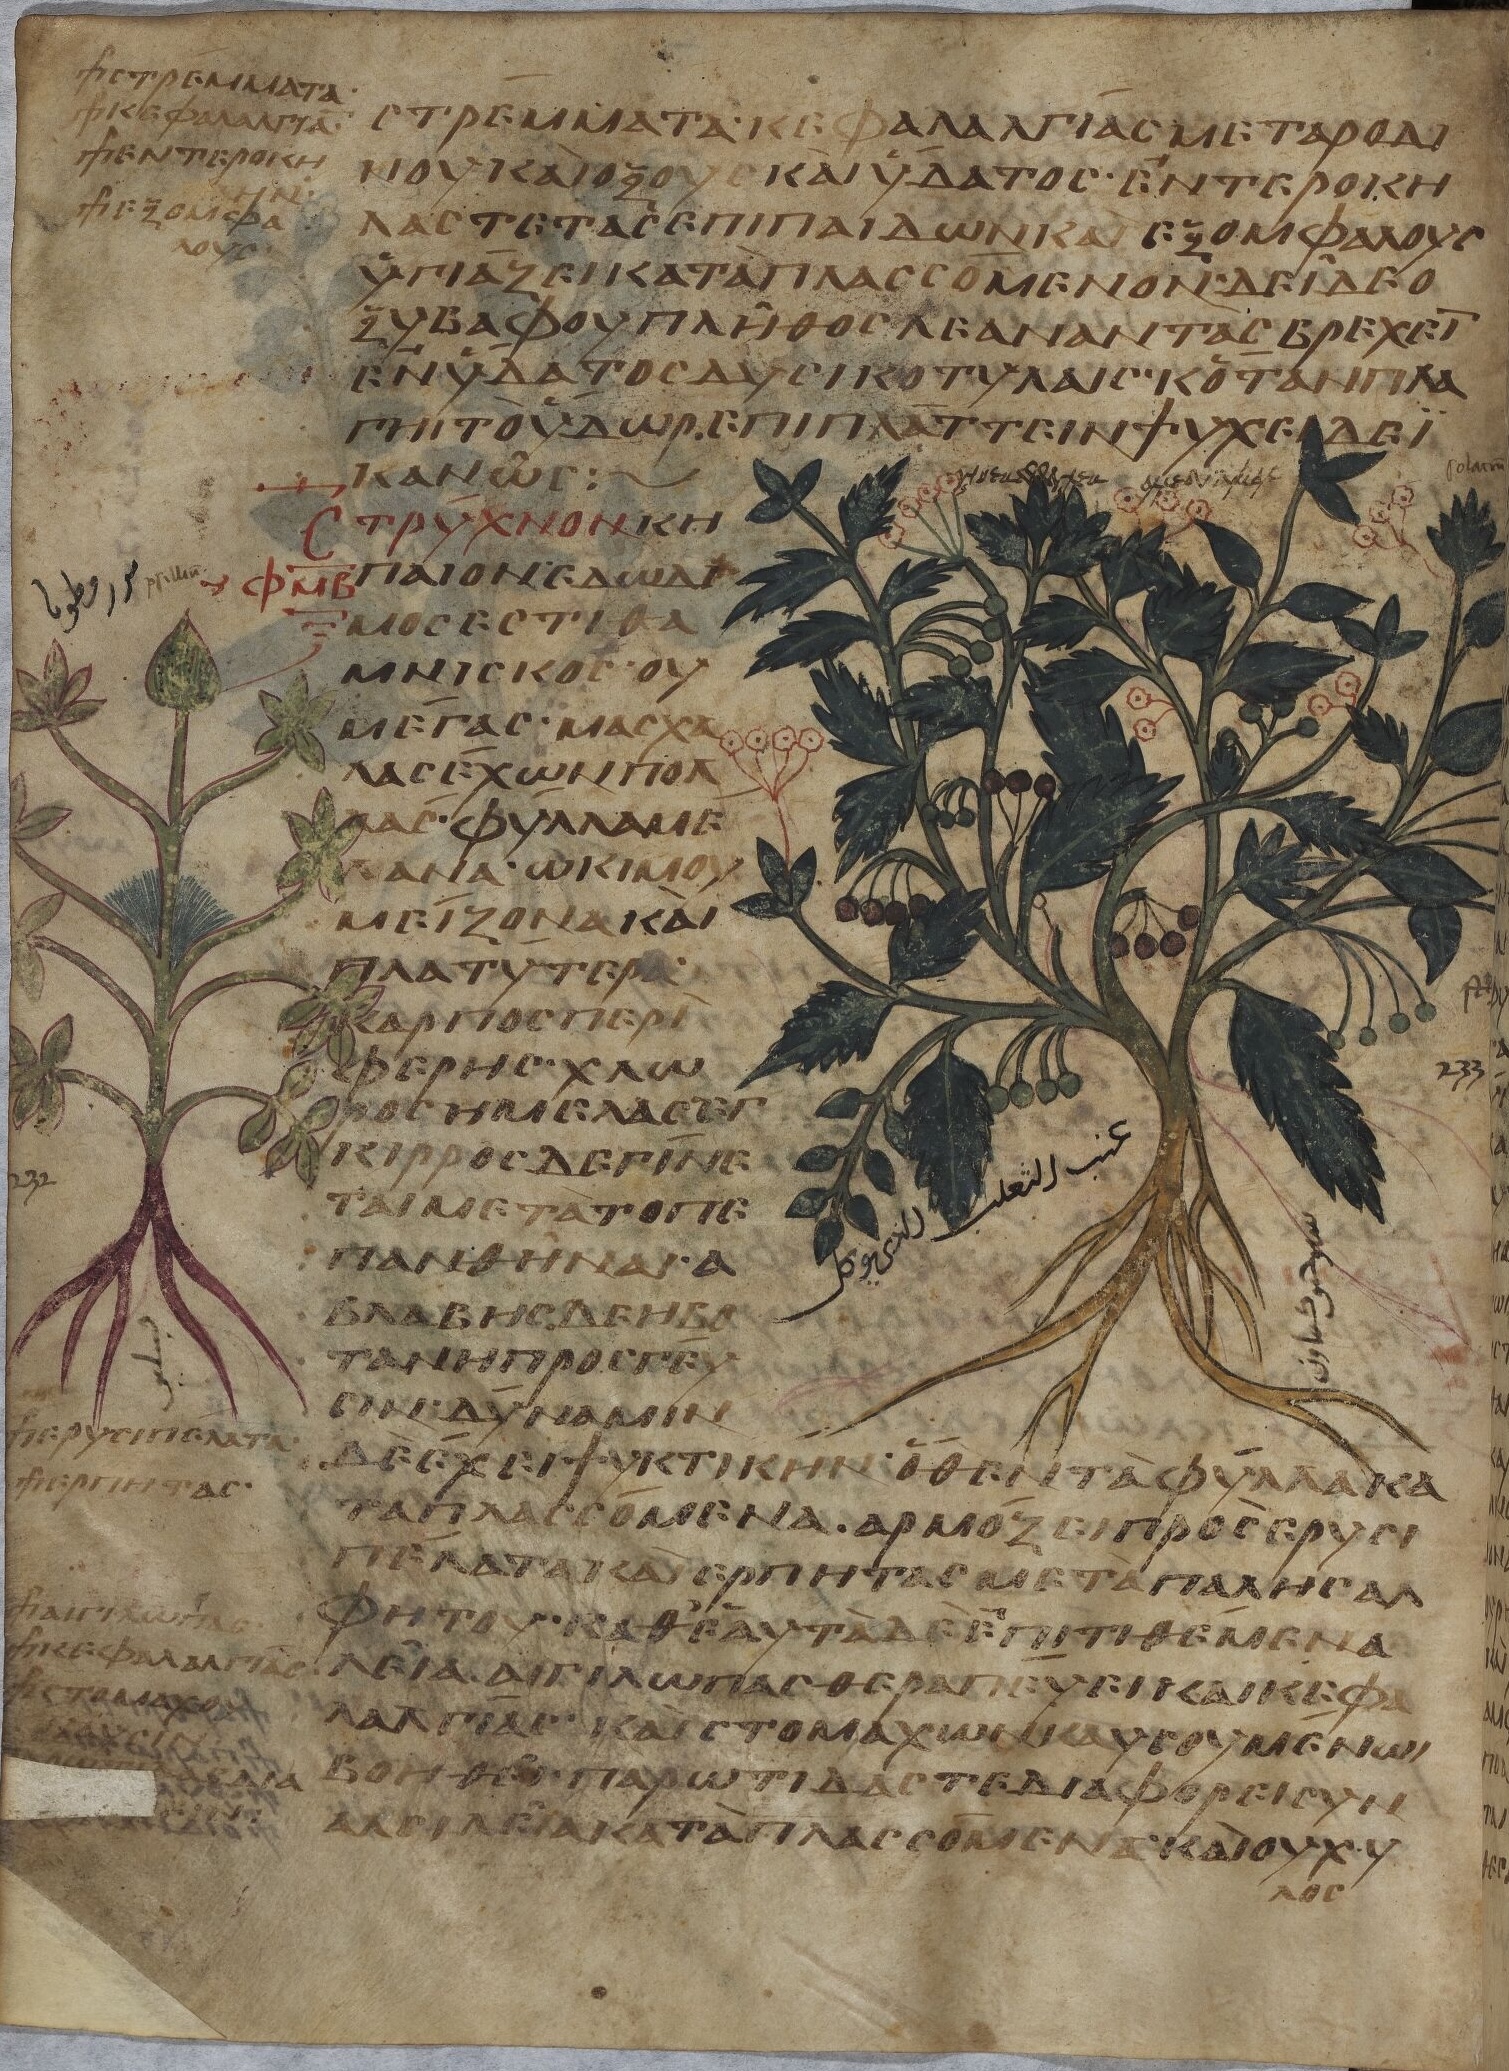 ΣΤΡΕΜΜΑΤΑ·
ΚΕΦΑΛΑΛΓΙΑ
ΕΝΤΕΡΟΚΗ
ΛΗΝ·
ΕΞΟΜΦΑ
ΛΟΥΣ·
ΣΤΡΕΜΜΑΤΑ· ΚΕΦΑΛΑΛΓΙΑΣ· ΜΕΤΑ ΡΟΔΙ
ΝΟΥ ΚΑΙ ΟΞΟΥΣ ΚΑΙ ΥΔΑΤΟΣ· ΕΝΤΕΡΟΚΗ
ΛΑΣ ΤΕ ΤΑΣ ΕΠΙ ΠΑΙΔΩΝ ΚΑΙ ΕΞΟΜΦΑΛΟΥΣ
ΥΓΙΑΖΕΙ ΚΑΤΑΠΛΑΣΣΟΜΕΝΟΝ· ΔΕΙ ΔΕ Ο
ΞΥΒΑΦΟΥ ΠΛΗΘΟΣ ΛΕΑΝΑΝΤΑΣ ΒΡΕΧΕΙ
ΕΝ ΥΔΑΤΟΣ ΔΥΣΙ ΚΟΤΥΛΑΙΣ· Κ ΟΤΑΝ ΠΑ
ΓΗΙ ΤΟ ΥΔΩΡ. ΕΠΙΠΛΑΤΤΕΙΝ ΨΥΧΕΙ ΔΕ Ι
ΚΑΝΩΣ:
ΣΤΡΥΧΝΟΝ ΚΗ
ΦΜΒ
ΠΑΙΟΝ· ΕΔΩΔΙ
ΜΟΣ ΕΣΤΙ ΘΑ
ΜΝΙΣΚΟΣ· ΟΥ
ΜΕΓΑΣ· ΜΑΣΧΑ
ΛΑΣ ΕΧΩΝ ΠΟΛ
ΛΑΣ· ΦΥΛΛΑ ΜΕ
ΛΑΝΑ· ΩΚΙΜΟΥ
ΜΕΙΖΟΝΑ ΚΑΙ
ΠΛΑΤΥΤΕΡΑ·
ΚΑΡΠΟΣ ΠΕΡΙ
ΦΕΡΗΣ· ΧΛΩ
ΡΟΣ Η ΜΕΛΑΣ
ΚΙΡΡΟΣ ΔΕ ΓΙΝΕ
ΤΑΙ ΜΕΤΑ ΤΟ ΠΕ
ΠΑΝΘΗΝΑΙ· Α
ΒΛΑΒΗΣ ΔΕ Η ΒΟ
ΤΑΝΗ ΠΡΟΣ ΓΕΥ
ΣΙΝ· ΔΥΝΑΜΙΝ
ΔΕ ΕΧΕΙ ΨΥΚΤΙΚΗΝ· ΟΘΕΝ ΤΑ ΦΥΛΛΑ ΚΑ
ΤΑΠΛΑΣΣΟΜΕΝΑ· ΑΡΜΟΖΕΙ ΠΡΟΣ ΕΡΥΣΙ
ΠΕΛΑΤΑ ΚΑΙ ΕΡΠΗΤΑΣ ΜΕΤΑ ΠΑΛΗΣ ΑΛ
ΦΗΤΟΥ· ΚΑΘ ΕΑΥΤΑ ΔΕ ΕΠΙΤΙΘΕΜΕΝΑ
ΛΕΙΑ· ΑΙΓΙΛΩΠΑΣ ΘΕΡΑΠΕΥΕΙ ΚΑΙ ΚΕΦΑ
ΛΑΛΓΙΑΣ· ΚΑΙ ΣΤΟΜΑΧΩΙ ΚΑΥΣΟΥΜΕΝΩΙ
ΒΟΗΘΕΙ· ΠΑΡΩΤΙΔΑΣ ΤΕ ΔΙΑΦΟΡΕΙ ΣΥΝ
ΑΛΣΙ ΛΕΙΑ ΚΑΤΑΠΛΑΣΣΟΜΕΝΑ· ΚΑΙ Ο ΥΧΥ
ΛΟΣ
ΕΡΥΣΙΠΕΛΑΤΑ·
ΕΡΠΗΤΑΣ·
ΑΙΓΙΛΩΠΑΣ·
ΚΕΦΑΛΑΛΓΙΑΣ
ΣΤΟΜΑΧΟΥ
psilliu
232
233
عنب الثعلب الذي يوكل